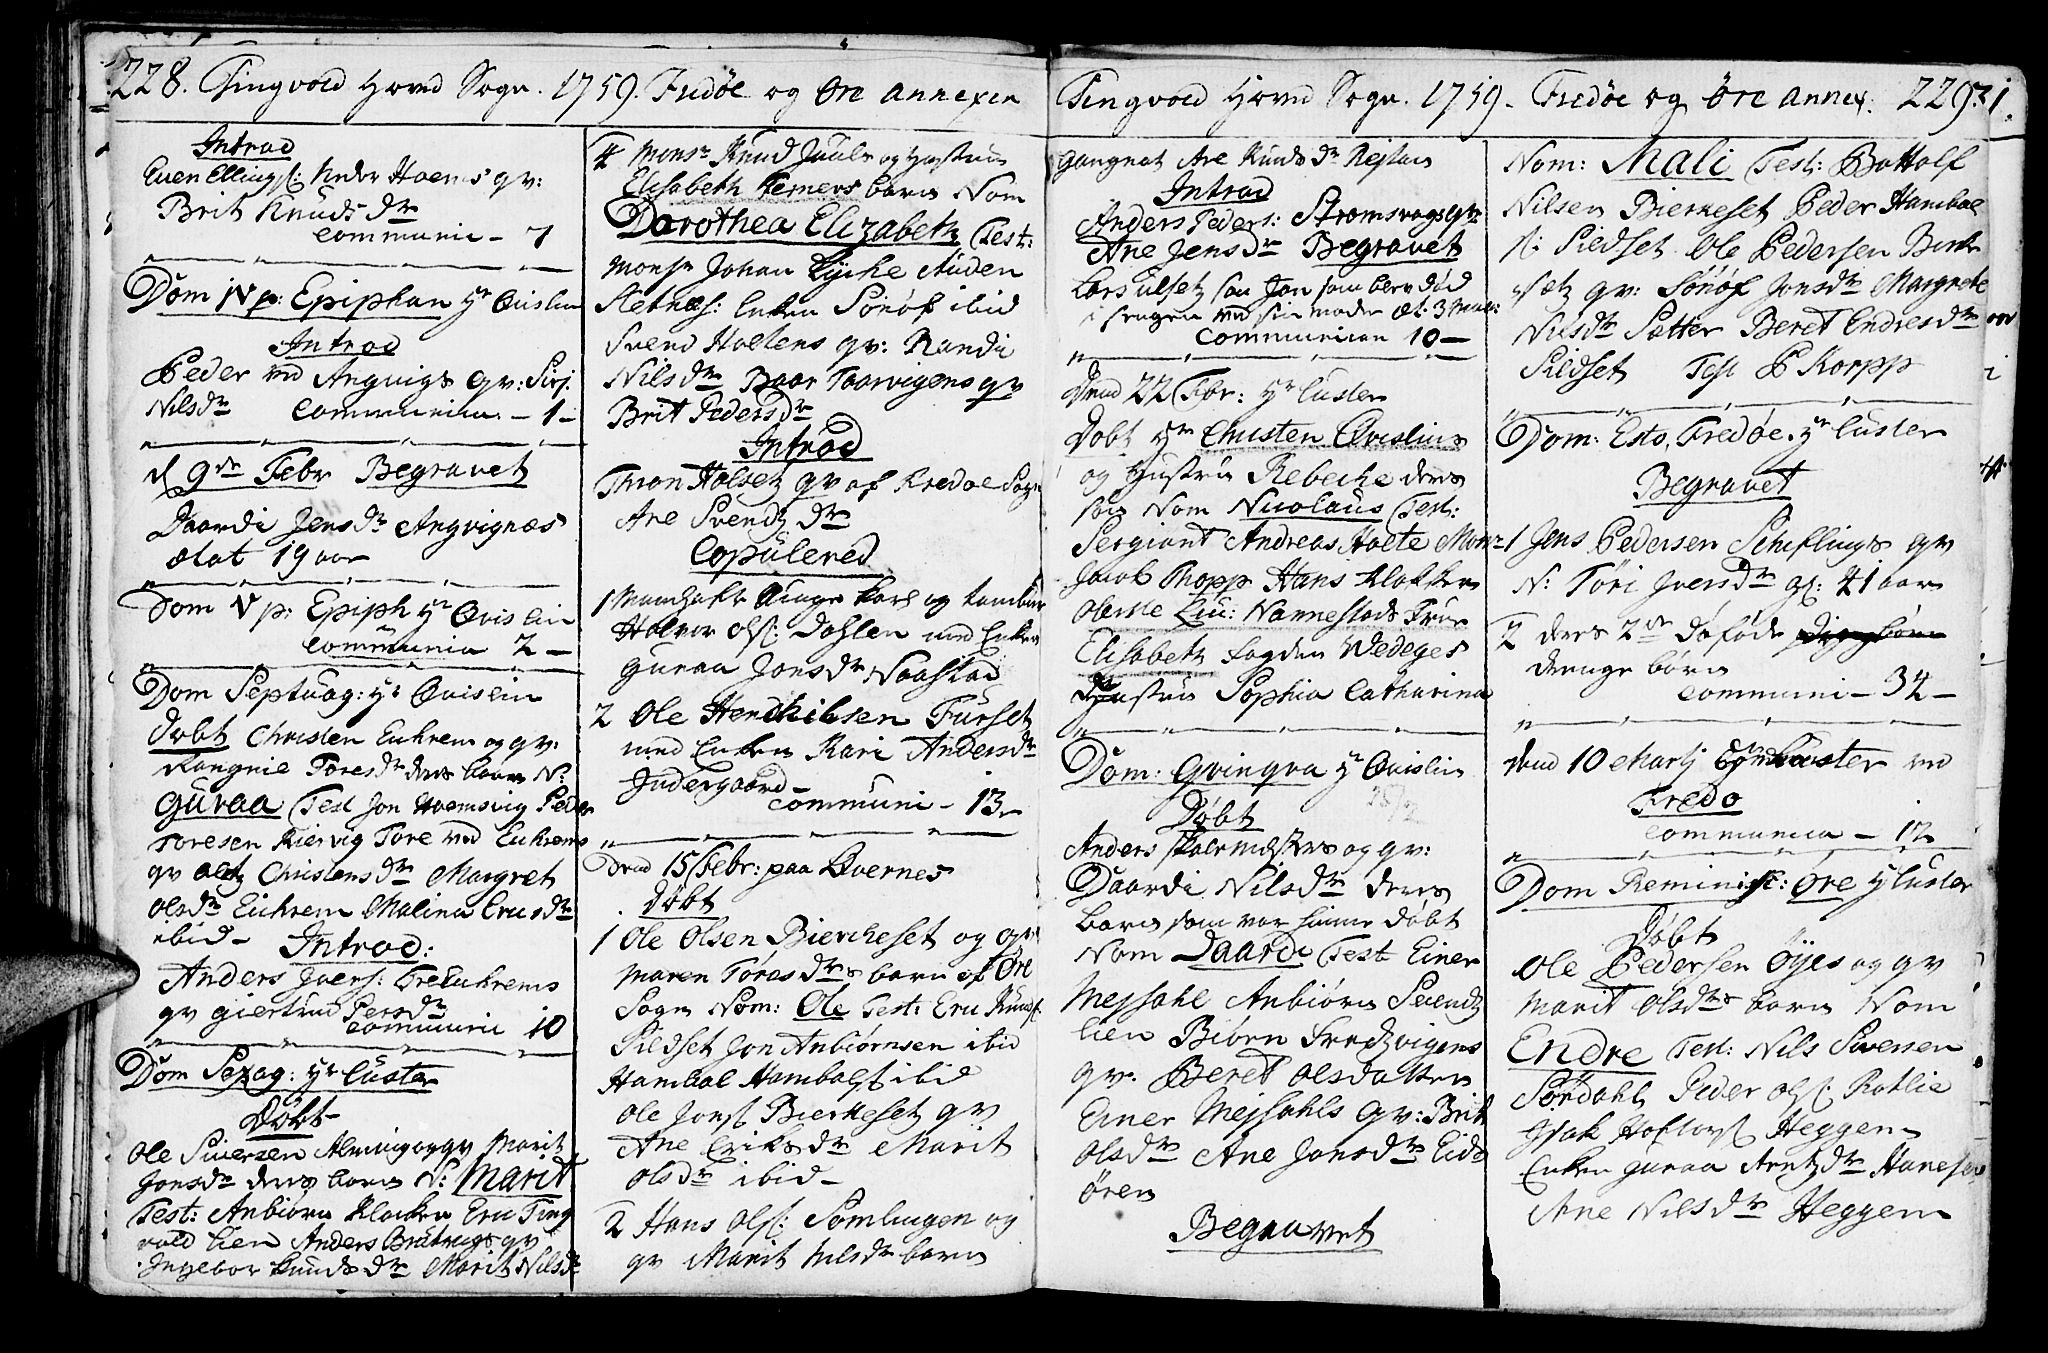 228. Tingvold Hoved Sogn. 1759. Fredøe og Øre annexen
Introd
Even Ellingsf: Neder Hoems qv:
Brit Knuds dtr
communic – 7
Dom IV p: Epiphan Hr Qvislin
Introd
Peder ved Angvigs qv: Siri
Nilsdtr communica. – 1 –
d 9de Febr Begravet
Daardi Jensdtr Angvignæs
ætat 19 aar
Dom V p: Epiph Hr Qvislin
communica 2 –
Dom Septuag: Hr Qvislin
Døbt Christen Eichrem og qv:
Rangnie Toresdtr deres barn N:
Guraa Test Jon Hoemsvig Peder
Toresen Kiervig Tore ved Eichrems
qv Christensdtr Margret
Olsdtr Eichrem Malina
ibid –
Introd:
Anders Jvers: Eichrems
qv Giertrud Persdtr
communic 10
Dom Sexag: Hr Custer
Døbt
Ole Siversen og qv Marit
Jonsdtr deres barn N: Marit
Test: Anbiørn Klocker Eric Ting
vold Lien Anders qv
Ingebor Knuds dtr Marit Nilsdtr
4 Monsr Knud og Hustrue
Elisabeth barn Nom
Dorothea Elizabeth Test:
Monsr Johan Lycke Auden
Sletnæs: Enken Sønøf ibid
Svend Holtens qv: Randi
Nilsdtr Boar Taarvigens qv
Brit Pedersdtr
Introd
Thron Holset qv af Fredøe Sogn
Ane Svends dtr
Copulered
1 og
Halvor Olsf: Dahlen med Enken
Guraa Jonsdtr Naastad
2 Ole Hendrichsen Furset
med Enken Kari Andersdtr
Indergaard –
communi – 13 –
Dend 15 Febr: paa Qvernes
Døbt
1 Ole Olsen Bierkeset og qv
Maren Tøres dtrs barn af Øre
Sogn Nom: Ole Test: Eric Knuds:
Sildset Jon Anbiørnsen ibid
Hambal Hambalsf ibid
Ole Jonsf Bierkeset qv
Ane Eriks dtr Marit
Olsdtr ibid –
2 Hans Olsf: Sømlingen og
qv Marit Nilsdtr barn
Tingvold Hoved Sogn. 1759. Fredøe og Øre annex. 229
Gangnat Are Knuds dtr Rejstan
Introd
Anders Peders: Strømsvogs qv:
Ane Jensdtr Begravet
Lars Ulset søn Jon som blev død
i sengen ved sin moder æt: 3 maan:
communican 10 –
Dend 22 Febr: Hr Custer
Døbt Hr Christen Qvislins
og Hustrue Rebecke deres
søn Nom Nicolaus Test:
Sergiant Andreas Holte Monsr
Jacob Thopp Hans Klokker
Liu: Nannestads Frue
Elisabeth Fogden Wedeges
Hustrue Sophia Catharina
Dom: Qvinqva Hr Qvislin
25/2
Døbt
Anders Skolemesters og qv:
Daardi Nilsdtr deres
barn som var hiemme døbt
Nom Daardi Test Einer
Mejsahl Anbiørn Svends
lien Biørn Fredsvigens
qv. Beret Olsdatter
Einer Mejsahls qv: Brit
Olsdtr Ane Jonsdtr Eids
øren
Begravet
Nom: Mali Test: Bottolf
Nilsen Bierkeset Peder Hambal
f: Sildset Ole Pedersen Birke
sætz qv: Sønøf Jonsdtr Margrete
Nilsdtr Sætter Beret Endresdtr
Sildset Test P Korpp
Dom: Esto, Fredøe. Hr Custer
Begravet
1 Jens Pedersen Schiflings qv
N: Töri Jversdtr gl: 41 aar
2 deres 2de døføde
drenge børn
communi – 34 –
dend 10 Martj Hr Custer ved
Fredø
communica – 12
Dom Reminisc: Øre Hr Custer
Døbt
Ole Pedersen Øyes og qv
Marit Olsdtrs barn Nom
Endre Test: Nils Siversen
Sørdahl Peder Olsf: Rotlie
Isak Heggem
Enken Guraa Arntzdtr
Ane Nilsdtr Heggem